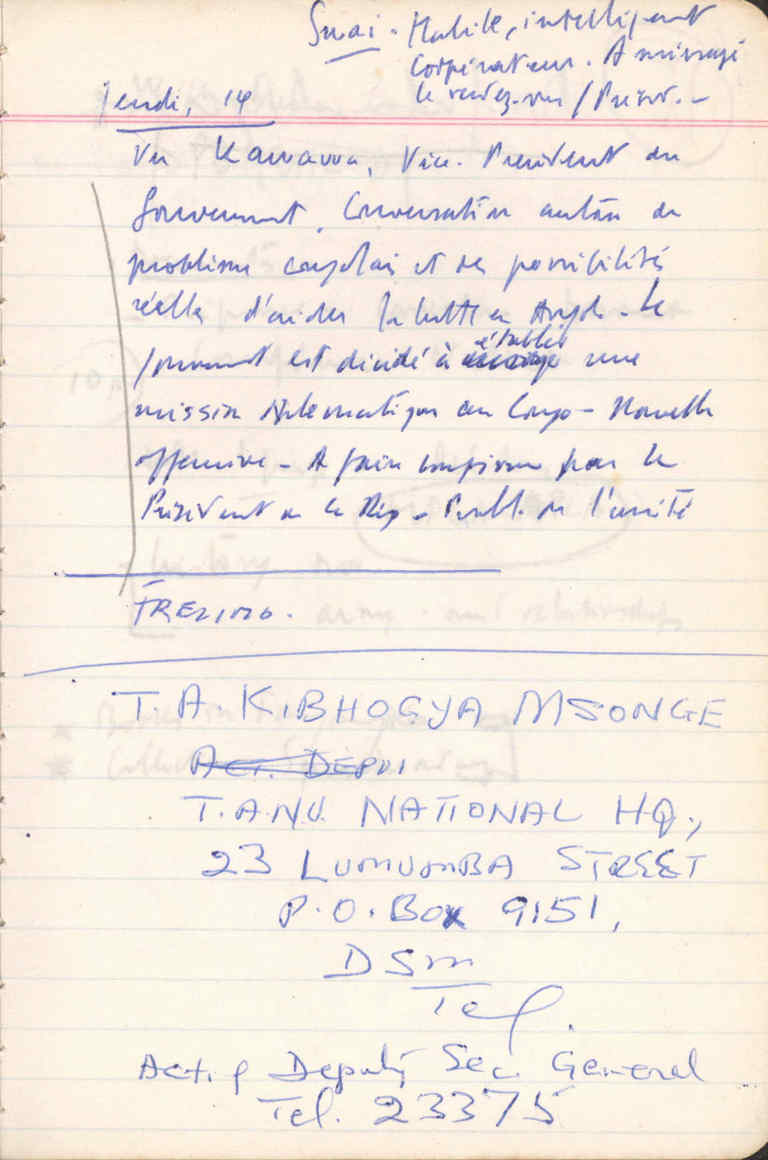 Swai - Habile, intelligent
Coopérateur. A ménagé
le rendez-vous / Présid. -
Jeudi, 14
Vu Kawawa, Vice-President du
Gouvernement. Conversation autour du
problème congolais et des possibilités
réelles d'aider la lutte en Angola - Le
gouvernement est décidé à établir une
mission diplomatique au Congo - Nouvelle
offensive - A faire confirmer par le
Président de la Rép - Probl. de l'unité
FRELIMO.
T. A. KIBHOGYA MSONGE
Act. DEPUI
T.A.N.U. NATIONAL HQ.,
23 LUMUMBA STREET
P.O. Box 9151,
DSM
Tel.
Acting Deputy Sec. General
Tel. 23375